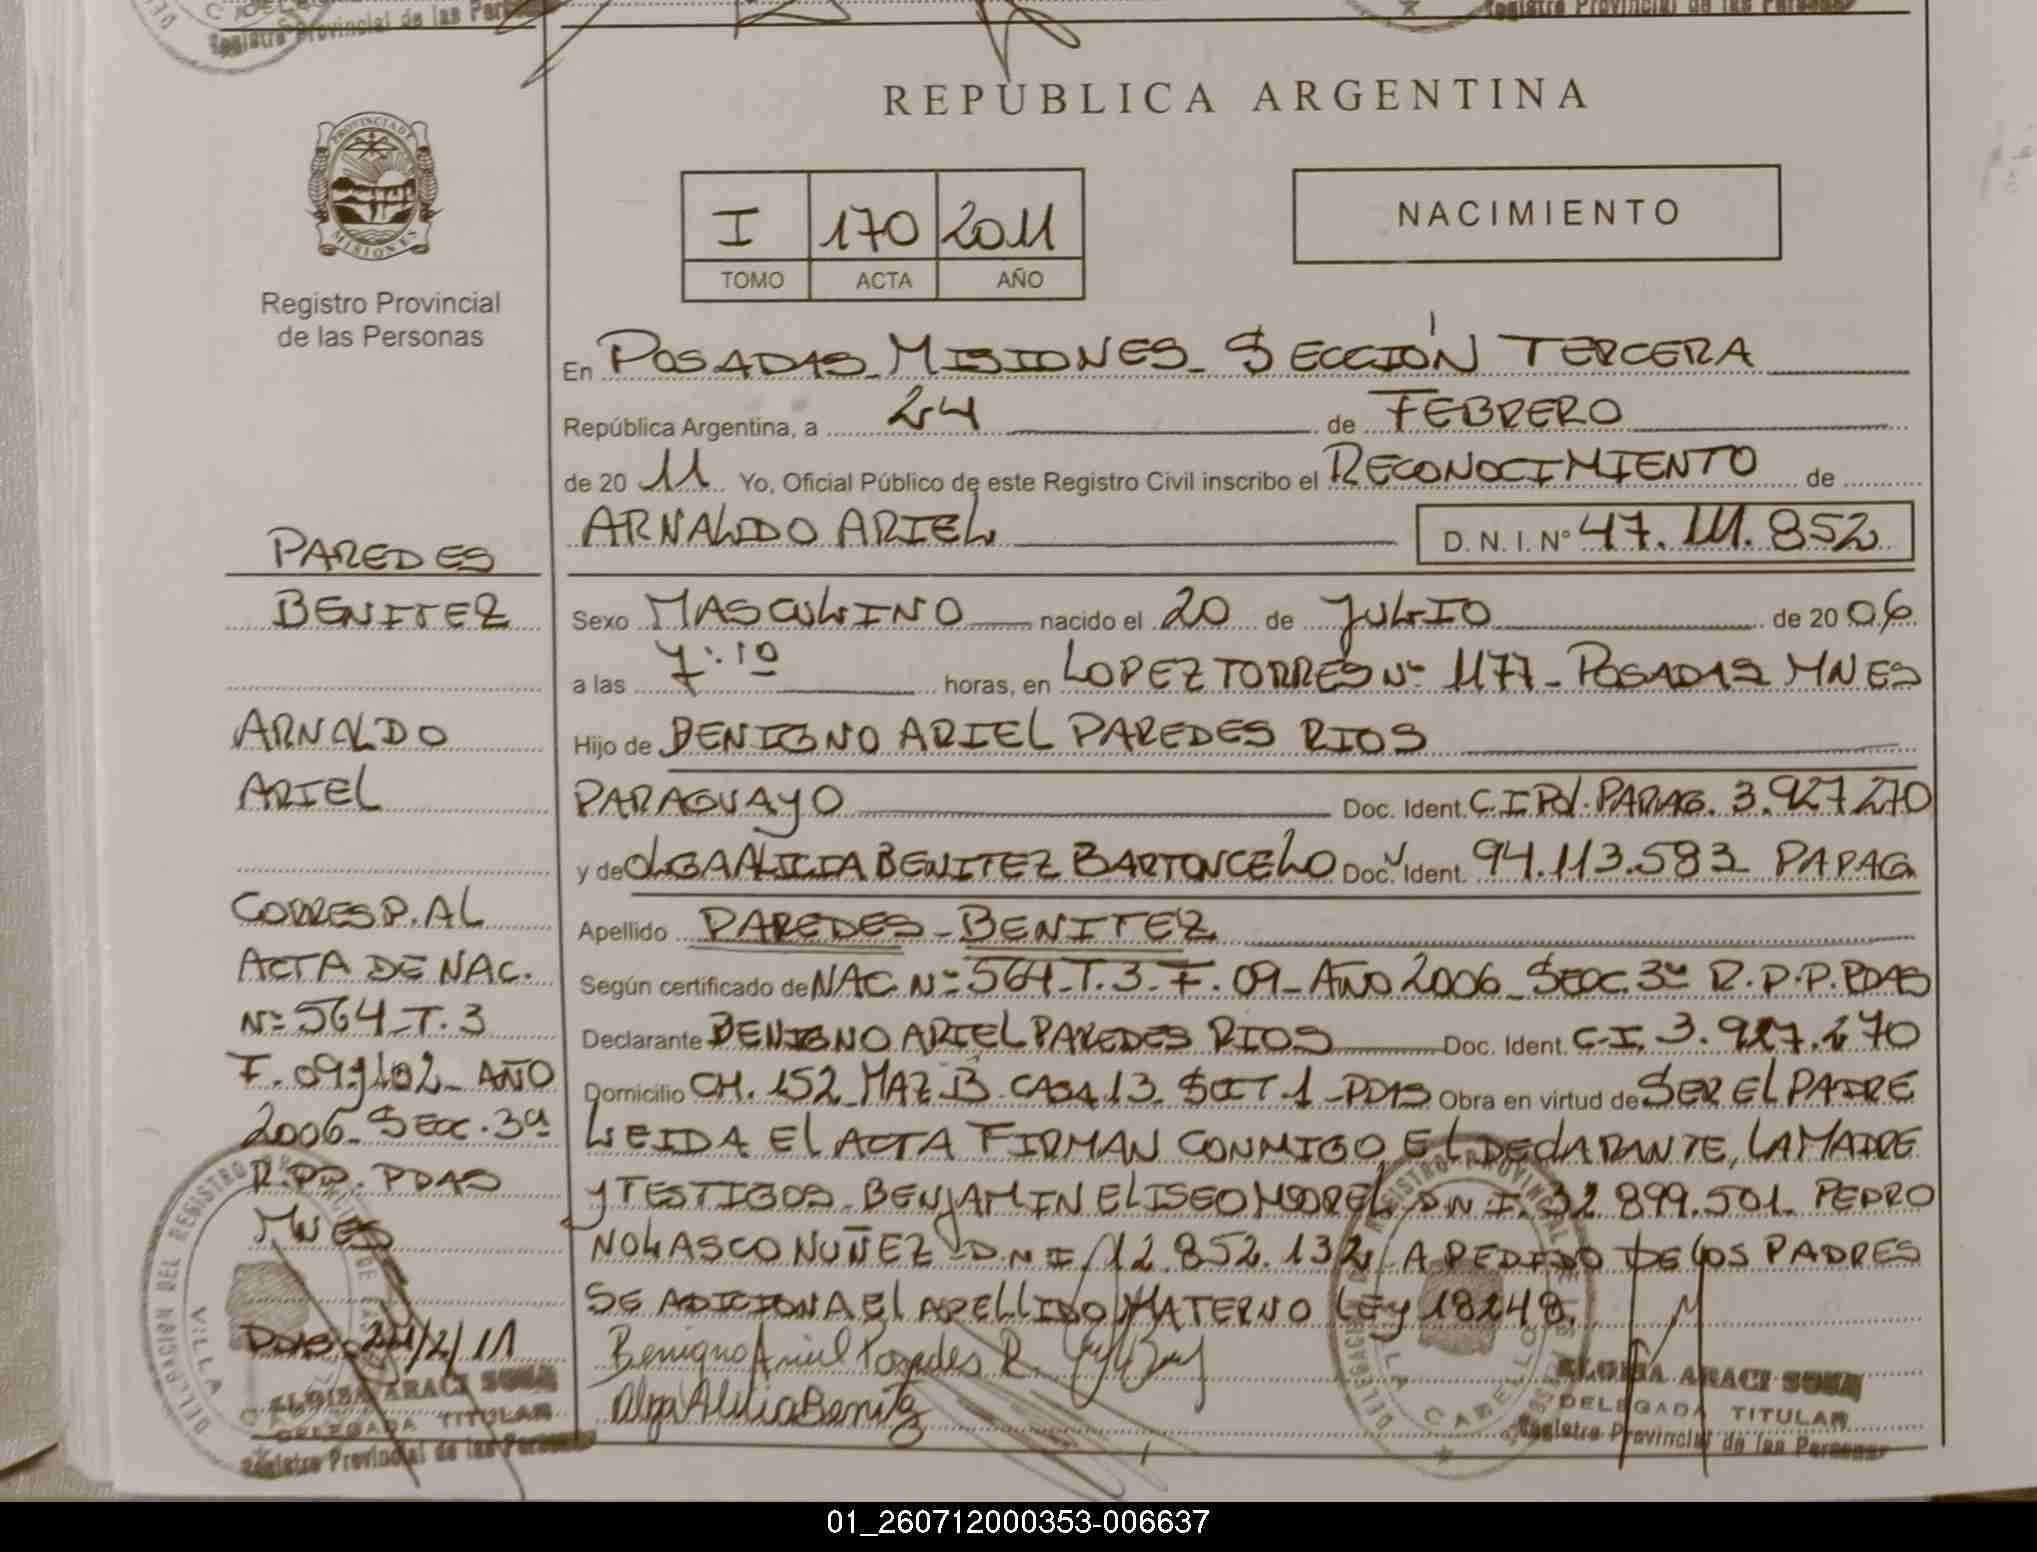 Registro Provincial de las Personas
Registro Provincial de las Personas
REPUBLICA ARGENTINA
PROVINCIA DE
MISIONES
Registro Provincial
de las Personas
I 170 2011
TOMO ACTA AÑO
NACIMIENTO
En POSADAS MISIONES SECCIÓN TERCERA
República Argentina, a 24 de FEBRERO
de 20 11 Yo, Oficial Público de este Registro Civil inscribo el RECONOCIMIENTO de
ARNALDO ARIEL D. N. I. N° 47.111.852
Sexo MASCULINO nacido el 20 de JULIO de 20 06
a las 7:10 horas, en LOPEZ TORRES Nº 1177 - POSADAS MNES
Hijo de BENIGNO ARIEL PAREDES RIOS
PARAGUAYO Doc. Ident. C.I.Pol. PARAG. 3.927.270
y de OLGA ALICIA BENITEZ BARTONCELO Doc. Ident. 94.113.583 PARAG
Apellido PAREDES - BENITEZ
Según certificado de NAC Nº 564 - T.3 - F. 09 - AÑO 2006 - SECC. 3ª R.P.P. PDAS
Declarante BENIGNO ARIEL PAREDES RIOS Doc. Ident. C.I. 3.927.270
Domicilio CH. 152 MAZ B CASA 13 SECT 1 - PDAS Obra en virtud de SER EL PADRE
LEIDA EL ACTA FIRMAN CONMIGO EL DECLARANTE, LA MADRE
Y TESTIGOS - BENJAMIN ELISEO MOREL D.N.I. 32.899.501 PEDRO
NOLASCO NUÑEZ - D.N.I. 12.852.132 A PEDIDO DE LOS PADRES
SE ADICIONA EL APELLIDO MATERNO LEY 18248.
Benigno Ariel Paredes R.
Olga Alicia Benitez
PAREDES
BENITEZ
ARNALDO
ARIEL
CORRESP. AL
ACTA DE NAC.
Nº 564 - T. 3
F. 09 AÑO
2006 - SECC. 3ª
R.P.P. PDAS
MNES
PDAS 24/2/11
DELEGACIÓN DEL REGISTRO PROVINCIAL DE LAS
VILLA CABELLO
ELOISA ARACI SOSA
DELEGADA TITULAR
Registro Provincial de las Personas
DELEGACIÓN DEL REGISTRO PROVINCIAL DE LAS PERSONAS
VILLA CABELLO
ELOISA ARACI SOSA
DELEGADA TITULAR
Registro Provincial de las Personas
01_260712000353-006637